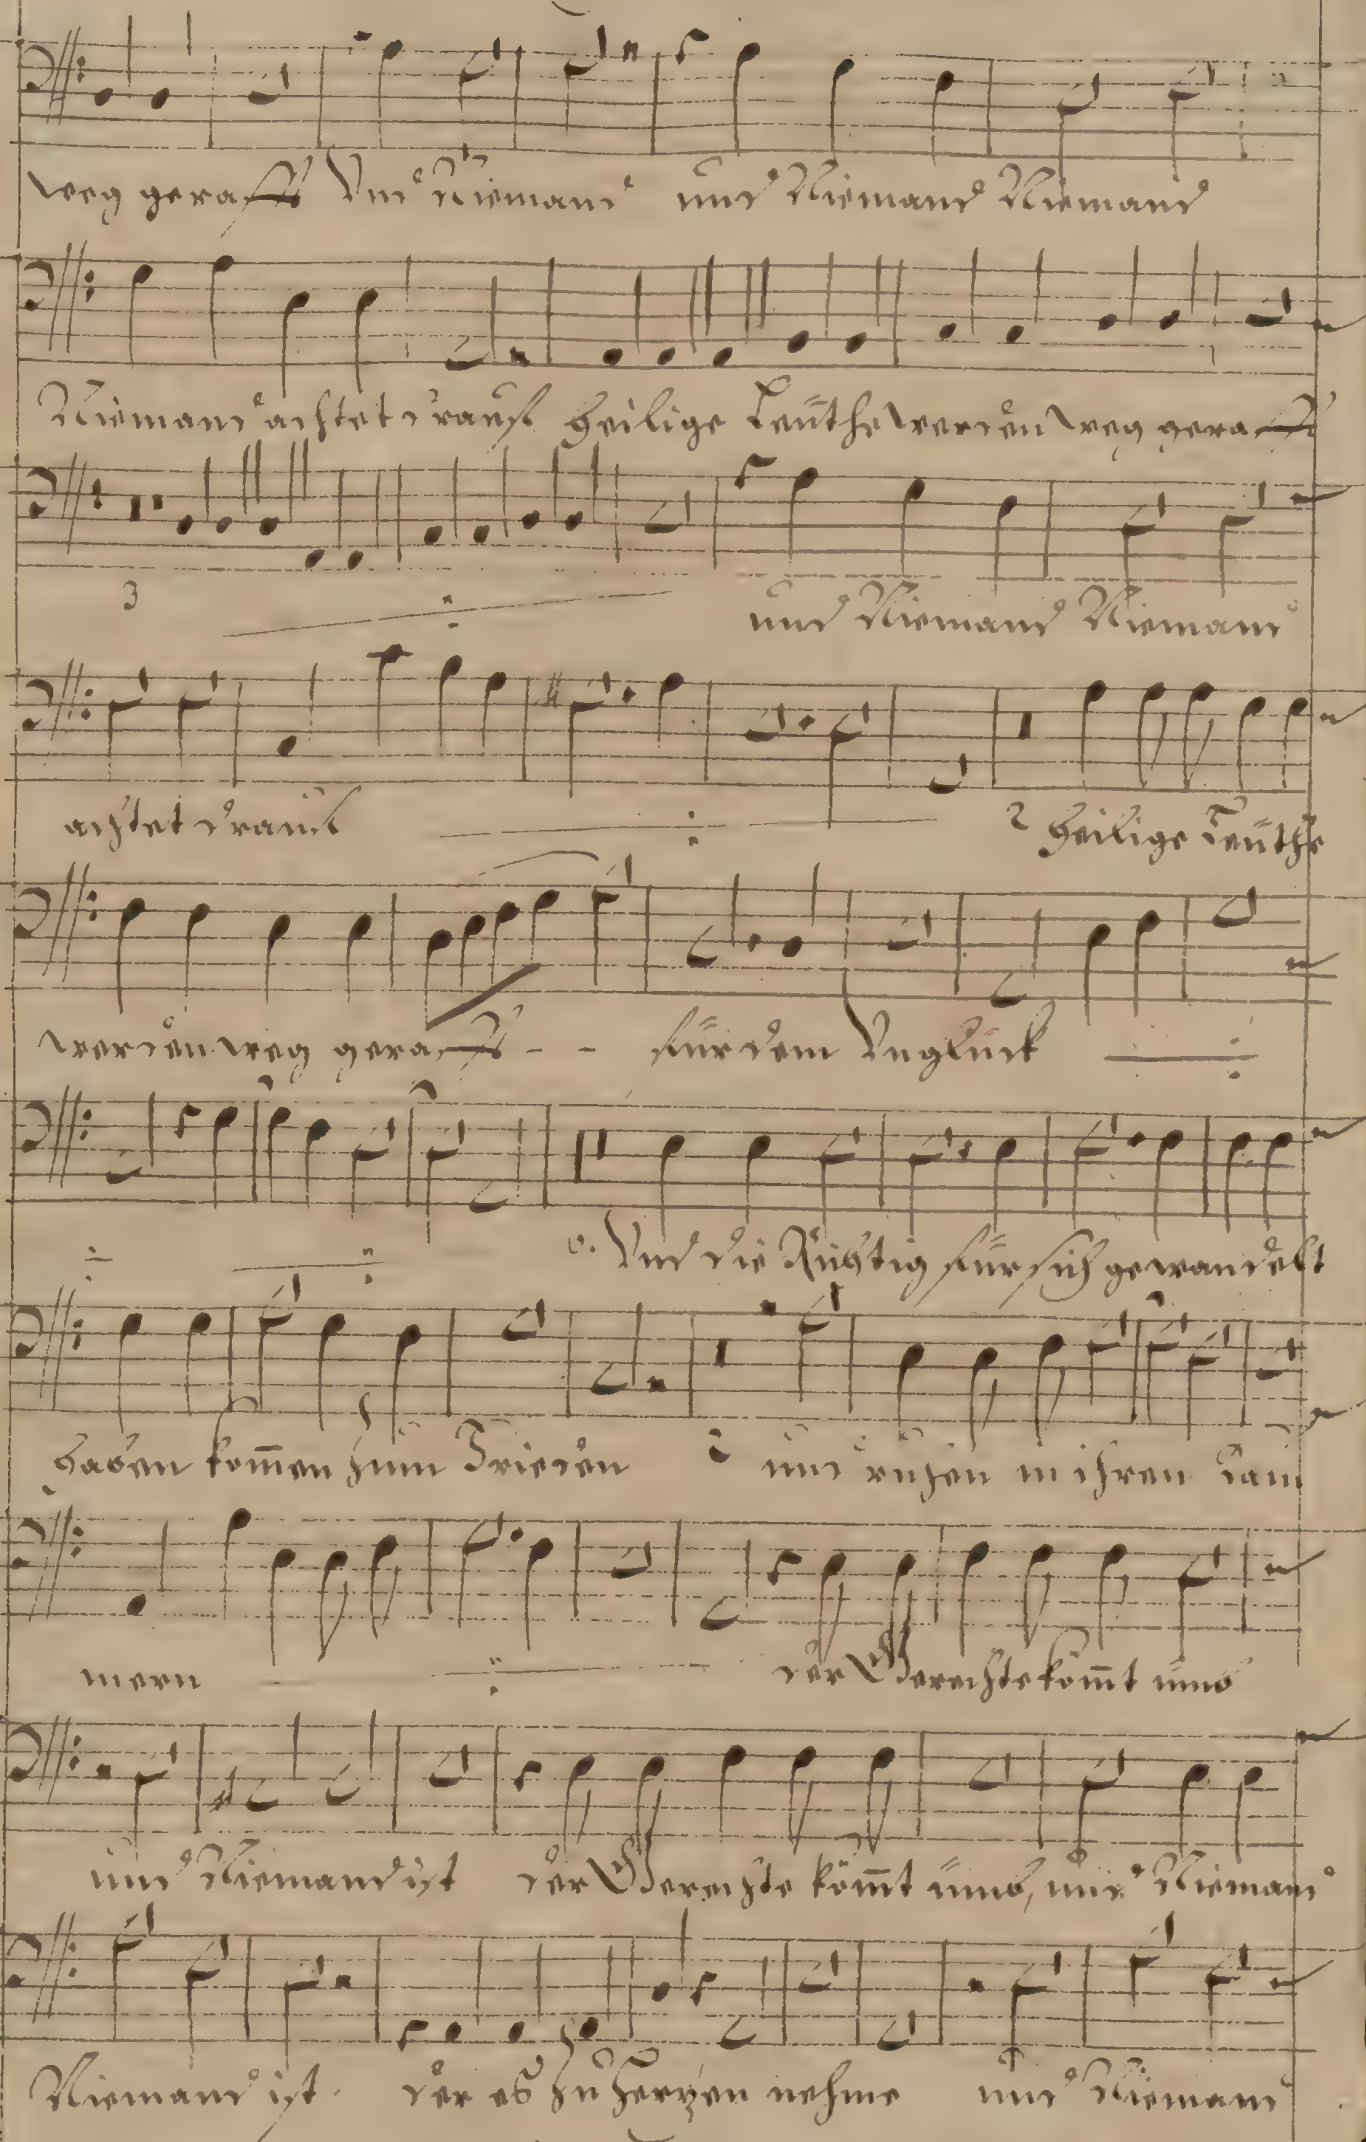 weg gerafft Und Niemand und Niemand Niemand
Niemand achtet drauf Heilige Leuthe werden weg gerafft
3
und Niemand Niemand
achtet drauf 2 Heilige Leuthe
werden weg gerafft - - für dem Unglück
Und die Richtig für sich gewandelt
haben kom̅en zum Frieden 2 und ruhen in ihren Cam
mern der Gerechte kom̅t umb
und Niemand ist der Gerechte kom̅t umb, und Niemand
Niemand ist. der es zu Herzen nehme und Niemand